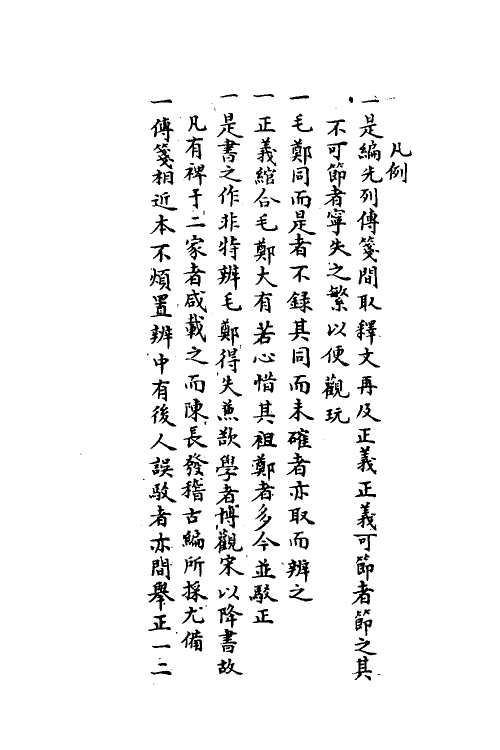 凡例
一是編先列傳箋間取釋文再及正義正義可節者節之其
不可節者寧失之繁以便觀玩
一毛鄭同而是者不錄其同而未確者亦取而辨之
一正義綰合毛鄭大有苦心惜其袒鄭者多今並駁正
一是書之作非特辨毛鄭得失蒸歆學者博觀宋以降書故
凡有裨于二家者咸載之而陳長發稽古編所採尤備
一傳箋相近本不煩置辨中有後人誤駁者亦間舉正一二